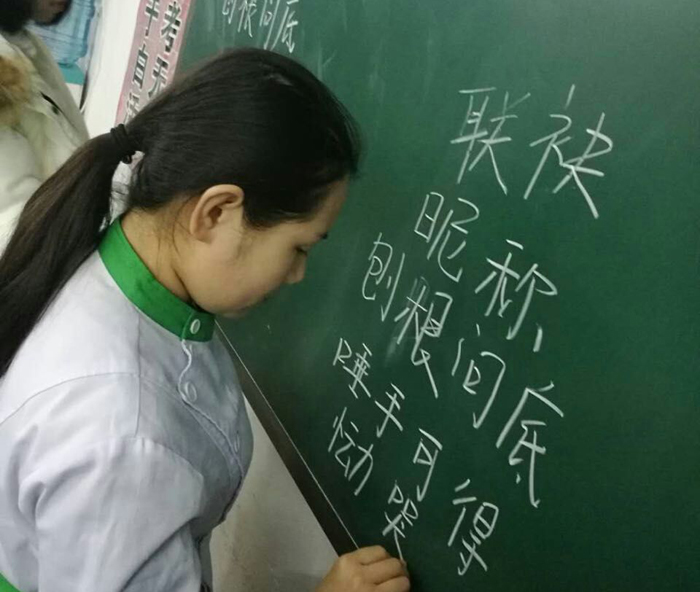 刨根问底
联袂
昵称
刨根问底
唾手可得
恸哭